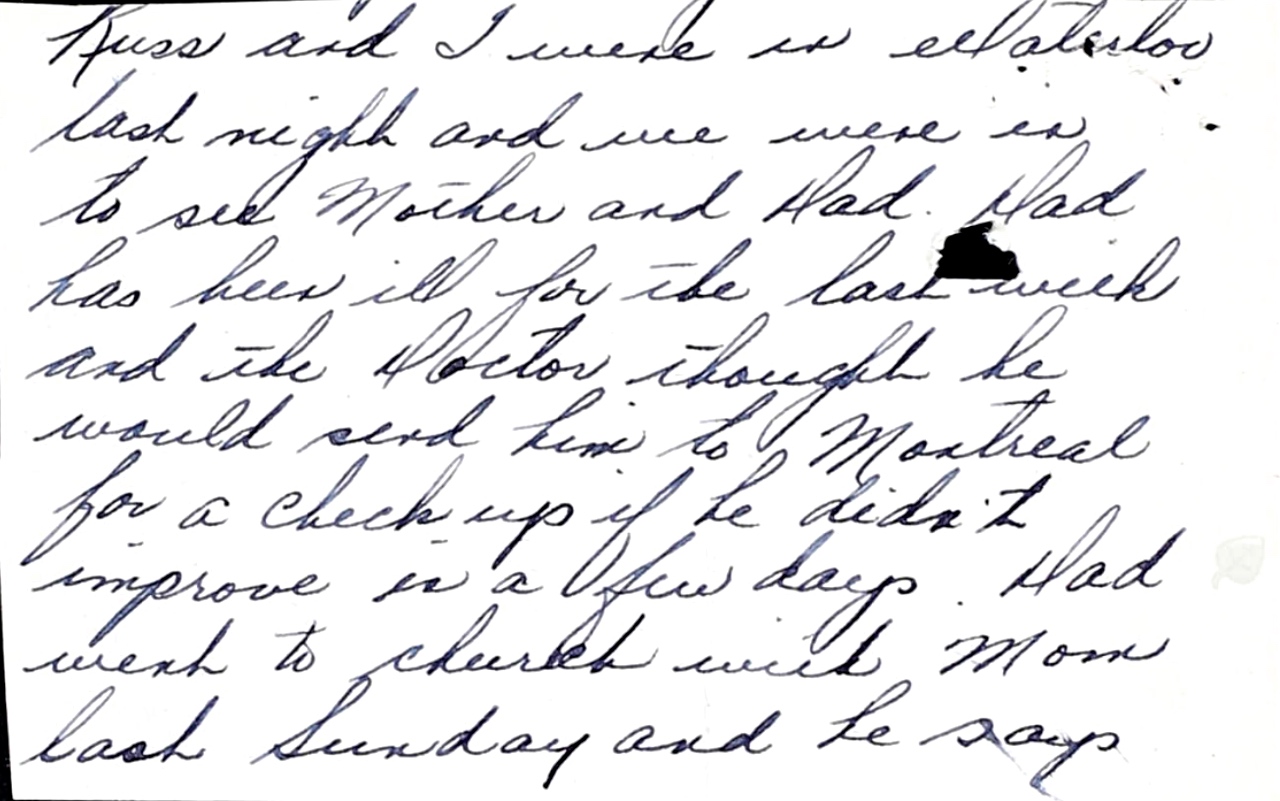 Russ and I were in Waterloo
last night and we were in
to see Mother and Dad. Dad
has been ill for the last week
and the Doctor thought he
would send him to Montreal
for a check up if he didn't
improve in a few days. Dad
went to church with Mom
last Sunday and he says